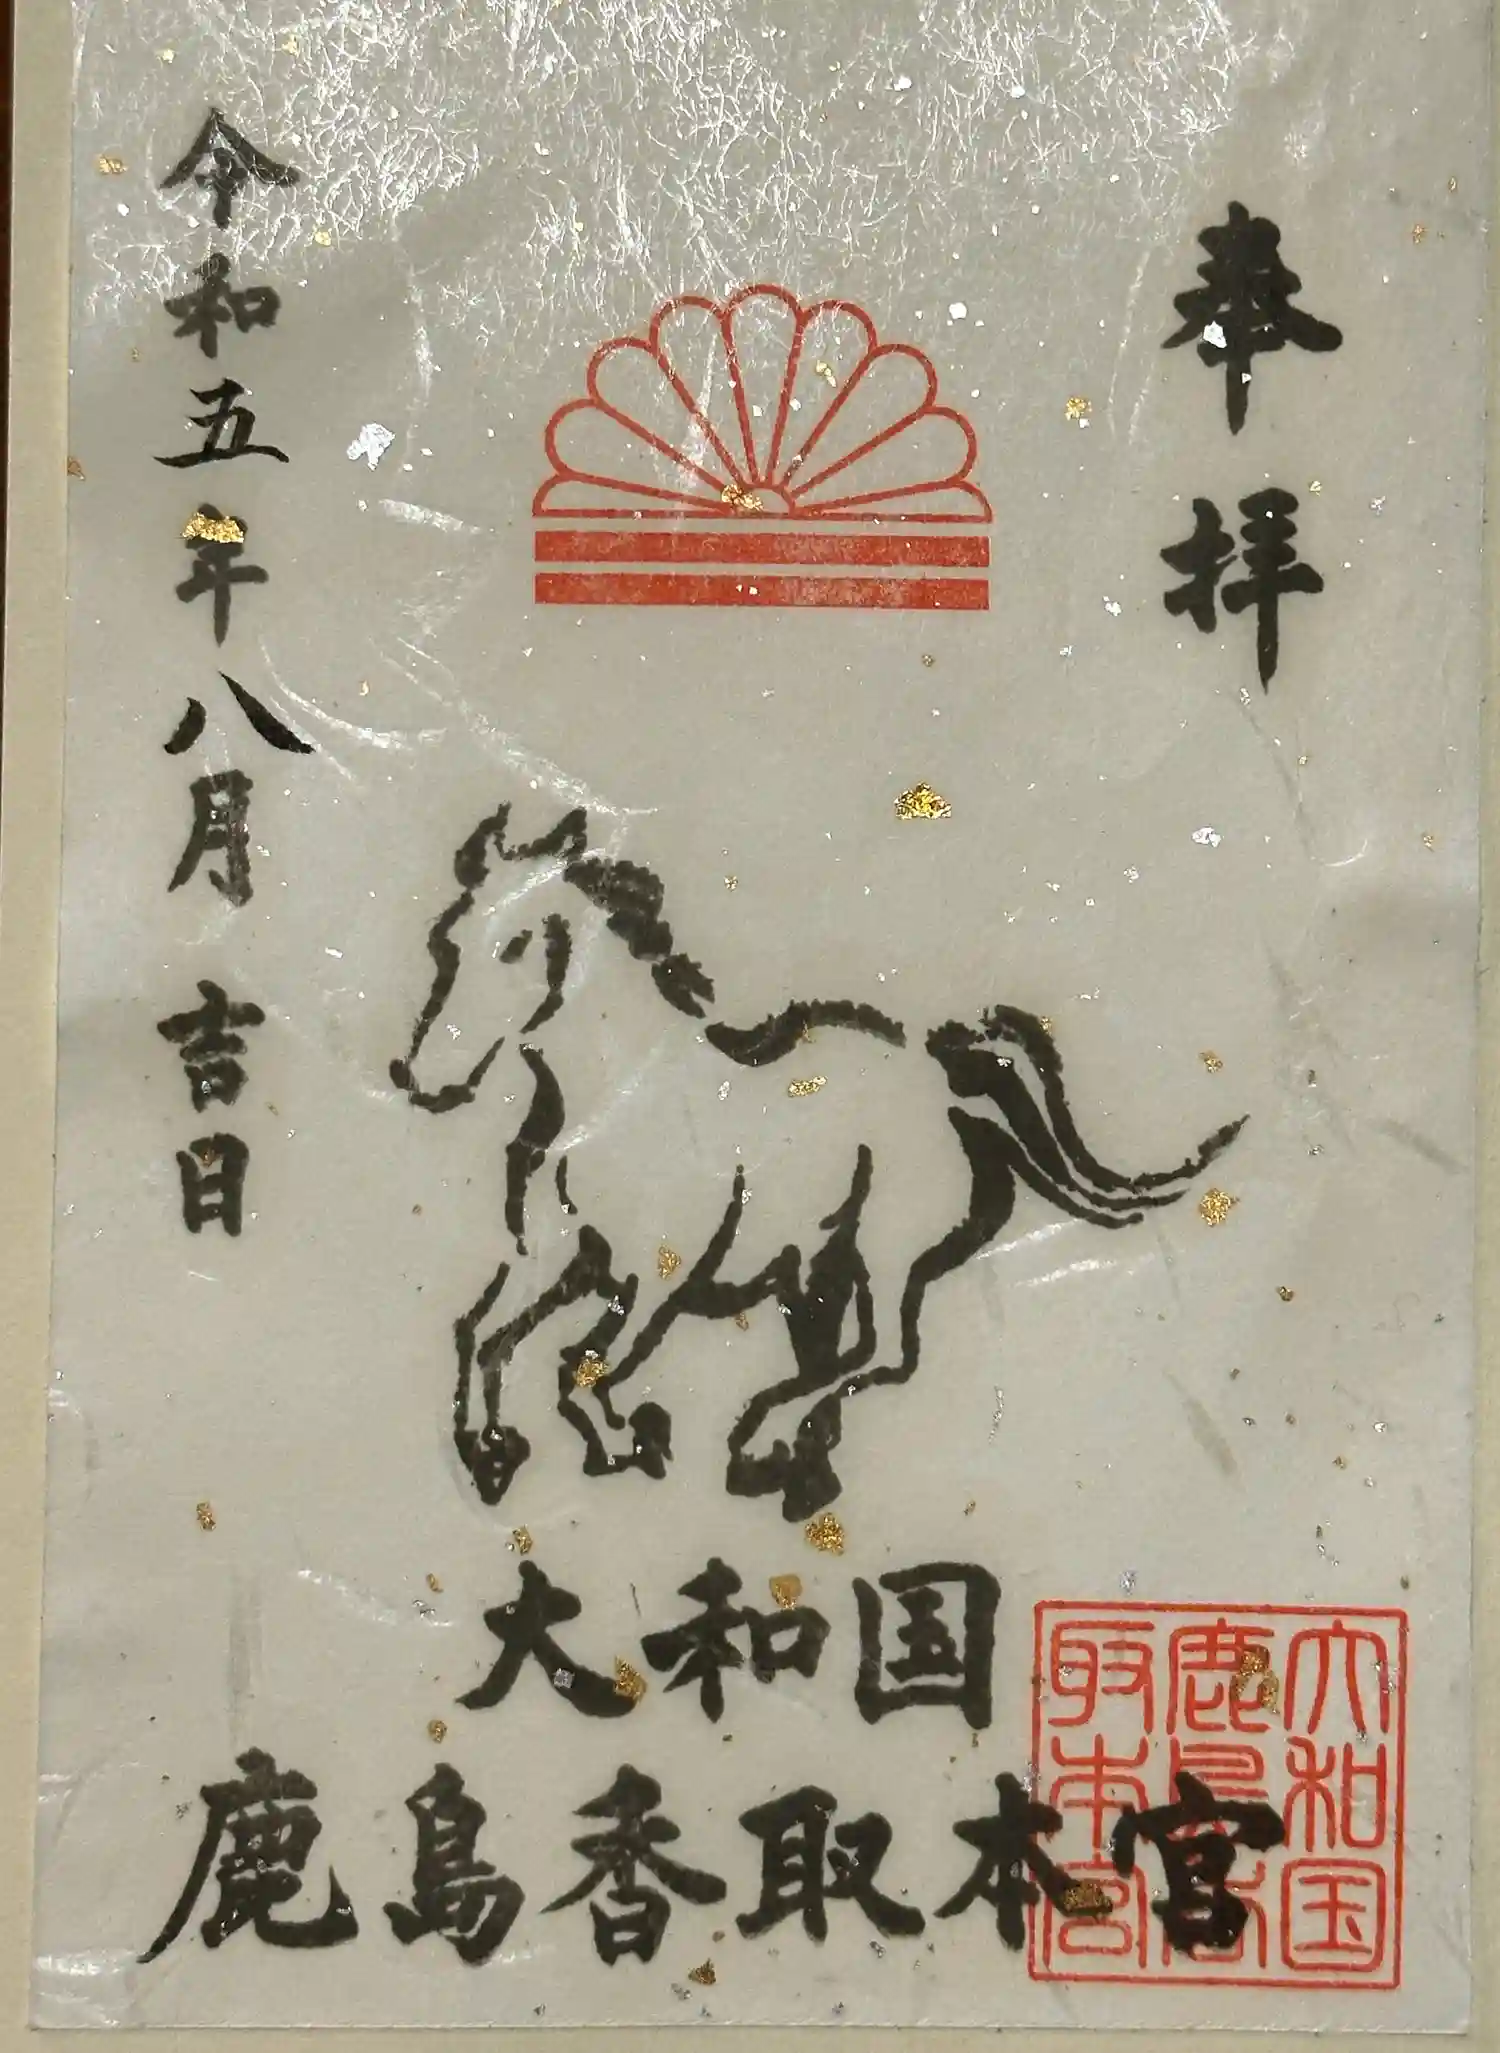 奉拝
大和国
鹿島香取本宮
大和国
鹿島香
取本宮
令和五年八月吉日